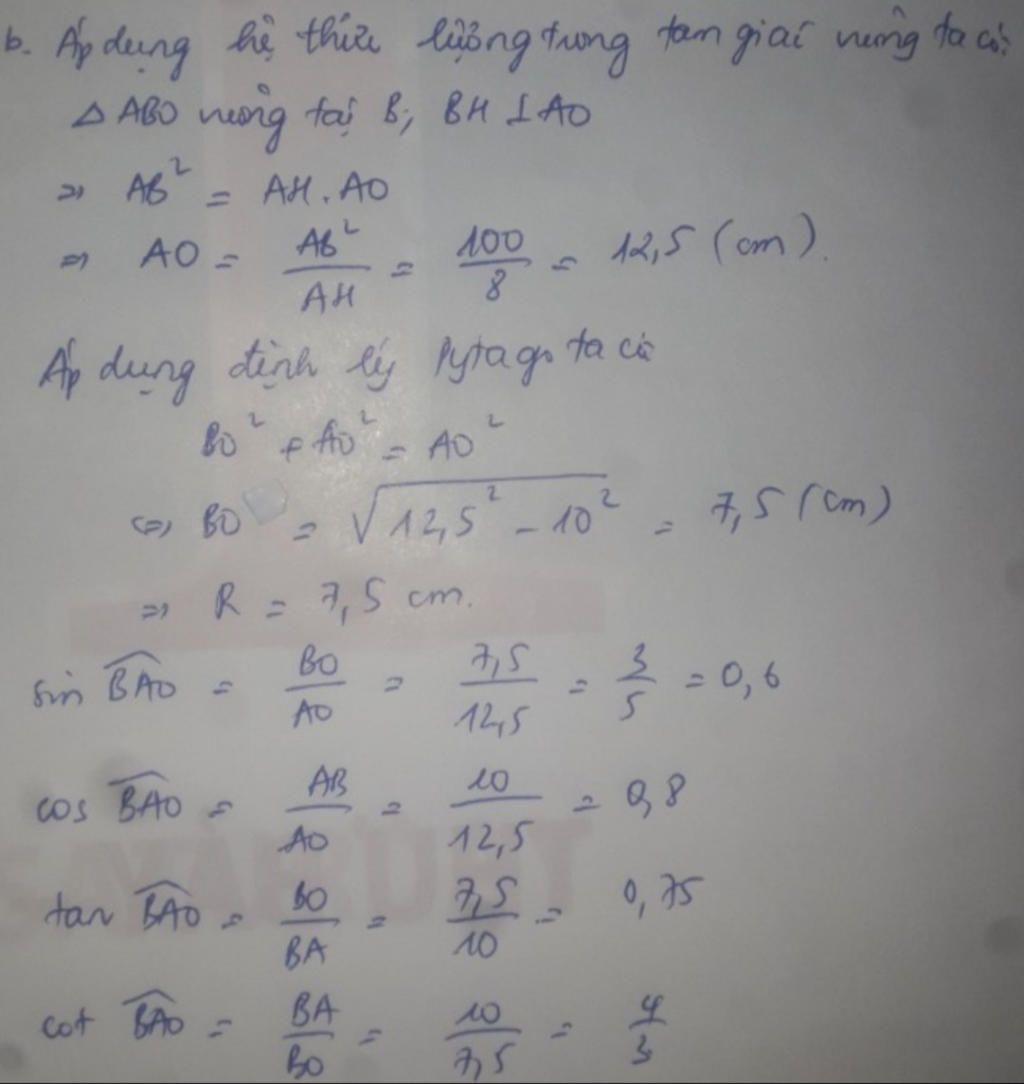 b. Áp dụng hệ thức lượng trong tam giác vuông ta có:
Δ ABO vuông tại B, BH ⊥ AO
=> AB² = AH . AO
=> AO = AB²/AH = 100/8 = 12,5 (cm).
Áp dụng định lý Pytago ta có
BO² + AO² = AO²
<=> BO = √(12,5² - 10²) = 7,5 (cm)
=> R = 7,5 cm.
sin BAO = BO/AO = 7,5/12,5 = 3/5 = 0,6
cos BAO = AB/AO = 10/12,5 = 0,8
tan BAO = BO/BA = 7,5/10 = 0,75
cot BAO = BA/BO = 10/7,5 = 4/3